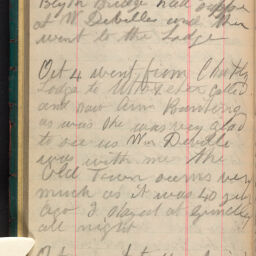 Blyth Bridge had supper
at W Debilles and then
went to the Lodge
Oct 4 went from
Lodge to called
and saw Ann
as was she was very glad
to see us Wm Deville
was with me the
Old Town seems very
much as it was 40 yrs
ago I stayed at
all night
Oct